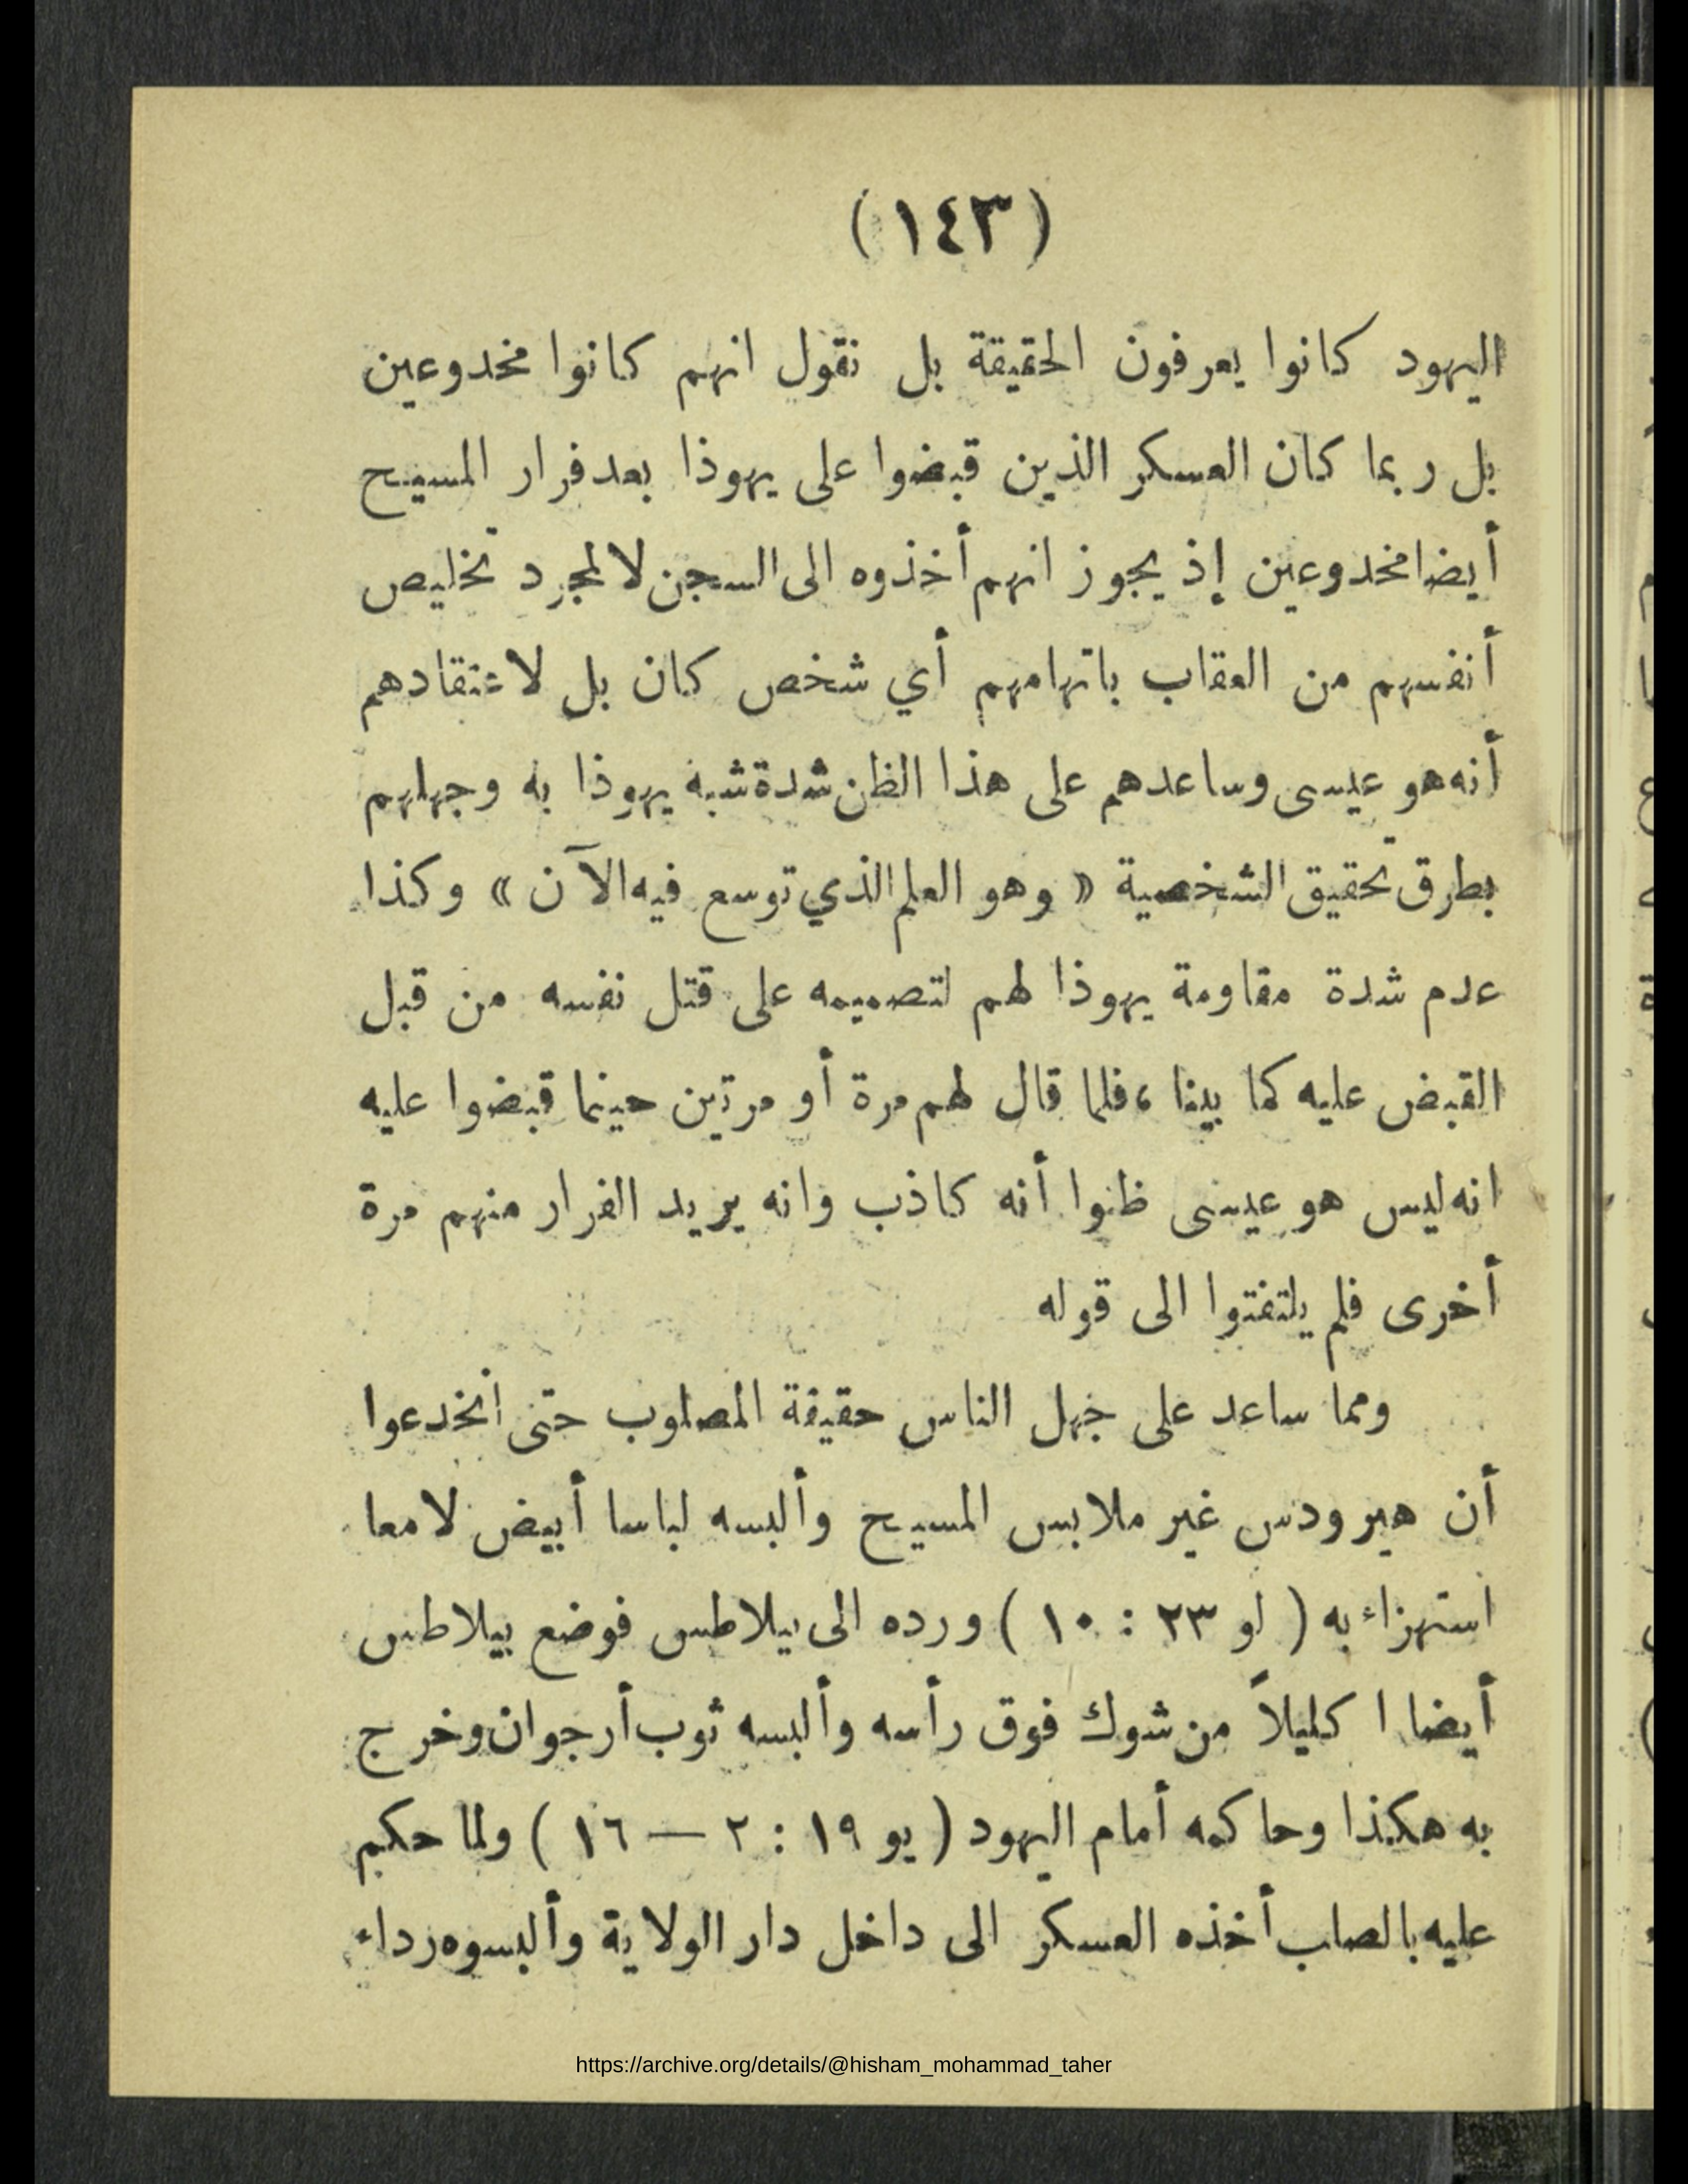 (١٤٣)
اليهود كانوا يعرفون الحقيقة بل نقول انهم كانوا مخدوعين
بل ربما كان العسكر الذين قبضوا على يهوذا بعد فرار المسيح
أيضا مخدوعين إذ يجوز انهم أخذوه الى السجن لا لمجرد تخليص
أنفسهم من العقاب باتهامهم أي شخص كان بل لاعتقادهم
أنه هو عيسى وساعدهم على هذا الظن شدة شبه يهوذا به وجهلهم
بطرق تحقيق الشخصية « وهو العلم الذي توسع فيه الآن » وكذا
عدم شدة مقاومة يهوذا لهم لتصميمه على قتل نفسه من قبل
القبض عليه كما بينا ، فلما قال لهم مرة أو مرتين حينما قبضوا عليه
انه ليس هو عيسى ظنوا أنه كاذب وانه يريد الفرار منهم مرة
أخرى فلم يلتفتوا الى قوله
ومما ساعد على جهل الناس حقيقة المصلوب حتى انخدعوا
أن هيرودس غير ملابس المسيح وألبسه لباسا أبيض لامعا
استهزاء به ( لو ٢٣ : ١٠ ) ورده الى بيلاطس فوضع بيلاطس
أيضا اكليلاً من شوك فوق رأسه وألبسه ثوب أرجوان وخرج
به هكذا وحاكمه أمام اليهود ( يو ١٩ : ٢ — ١٦ ) ولما حكم
عليه بالصلب أخذه العسكر الى داخل دار الولاية وألبسوه رداء
https://archive.org/details/@hisham_mohammad_taher